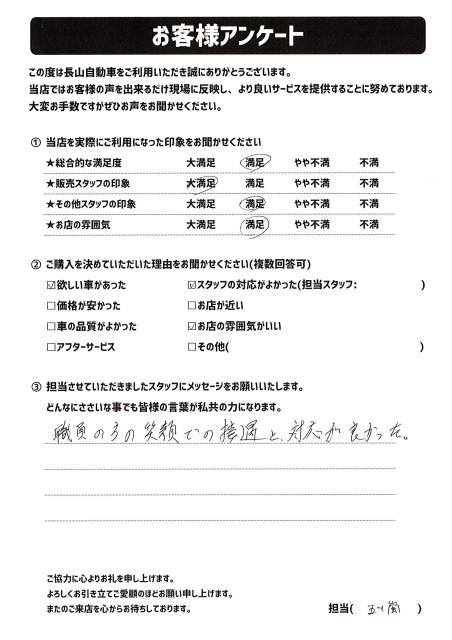 お客様アンケート
この度は長山自動車をご利用いただき誠にありがとうございます。
当店ではお客様の声を出来るだけ現場に反映し、より良いサービスを提供することに努めております。
大変お手数ですがぜひお声をお聞かせください。
① 当店を実際にご利用になった印象をお聞かせください
★総合的な満足度 大満足 満足 やや不満 不満
★販売スタッフの印象 大満足 満足 やや不満 不満
★その他スタッフの印象 大満足 満足 やや不満 不満
★お店の雰囲気 大満足 満足 やや不満 不満
② ご購入を決めていただいた理由をお聞かせください(複数回答可)
☑欲しい車があった ☑スタッフの対応がよかった(担当スタッフ: )
□価格が安かった □お店が近い
□車の品質がよかった ☑お店の雰囲気がいい
□アフターサービス □その他( )
③ 担当させていただきましたスタッフにメッセージをお願いいたします。
どんなにささいな事でも皆様の言葉が私共の力になります。
職員の方の笑顔での接遇と、対応が良かった。
ご協力に心よりお礼を申し上げます。
よろしくお引き立てご愛顧のほどお願い申し上げます。
またのご来店を心からお待ちしております。
担当( 五十嵐 )